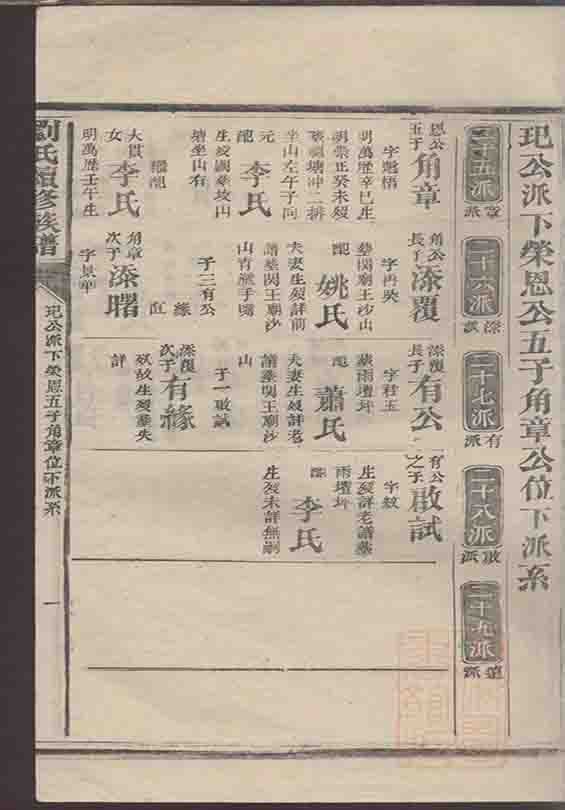 玘公派下榮恩公五子角章公位下派系
二十五派
章派
二十六派
添派
二十七派
有派
二十八派
啟派
二十九派
遠派
恩公五子
角章
字魁悟
明萬歷辛巳生
明崇正癸未歿
坐山左午子向
元
配
李氏
生歿同葬坟山
塘坐山有
大貫女
李氏
明萬歷壬午生
角公長子
添覆
字再癸
葬関廟王沙山
配
姚氏
夫妻生歿詳前
譜葬関王廟沙
山
子三有公
緣
直
角章次子
添曙
字景華
添覆長子
有公
字君玉
葬雨壇坪
配
蕭氏
夫妻生歿詳老
譜葬関王廟沙
山
子一啟試
添覆次子
有緣
歿故生歿葬失
詳
有公之子
啟試
字紋
生歿詳老譜葬
雨壇坪
配
李氏
生歿未詳無嗣
劉氏續修族譜
玘公派下榮恩五子角章位下派系
一